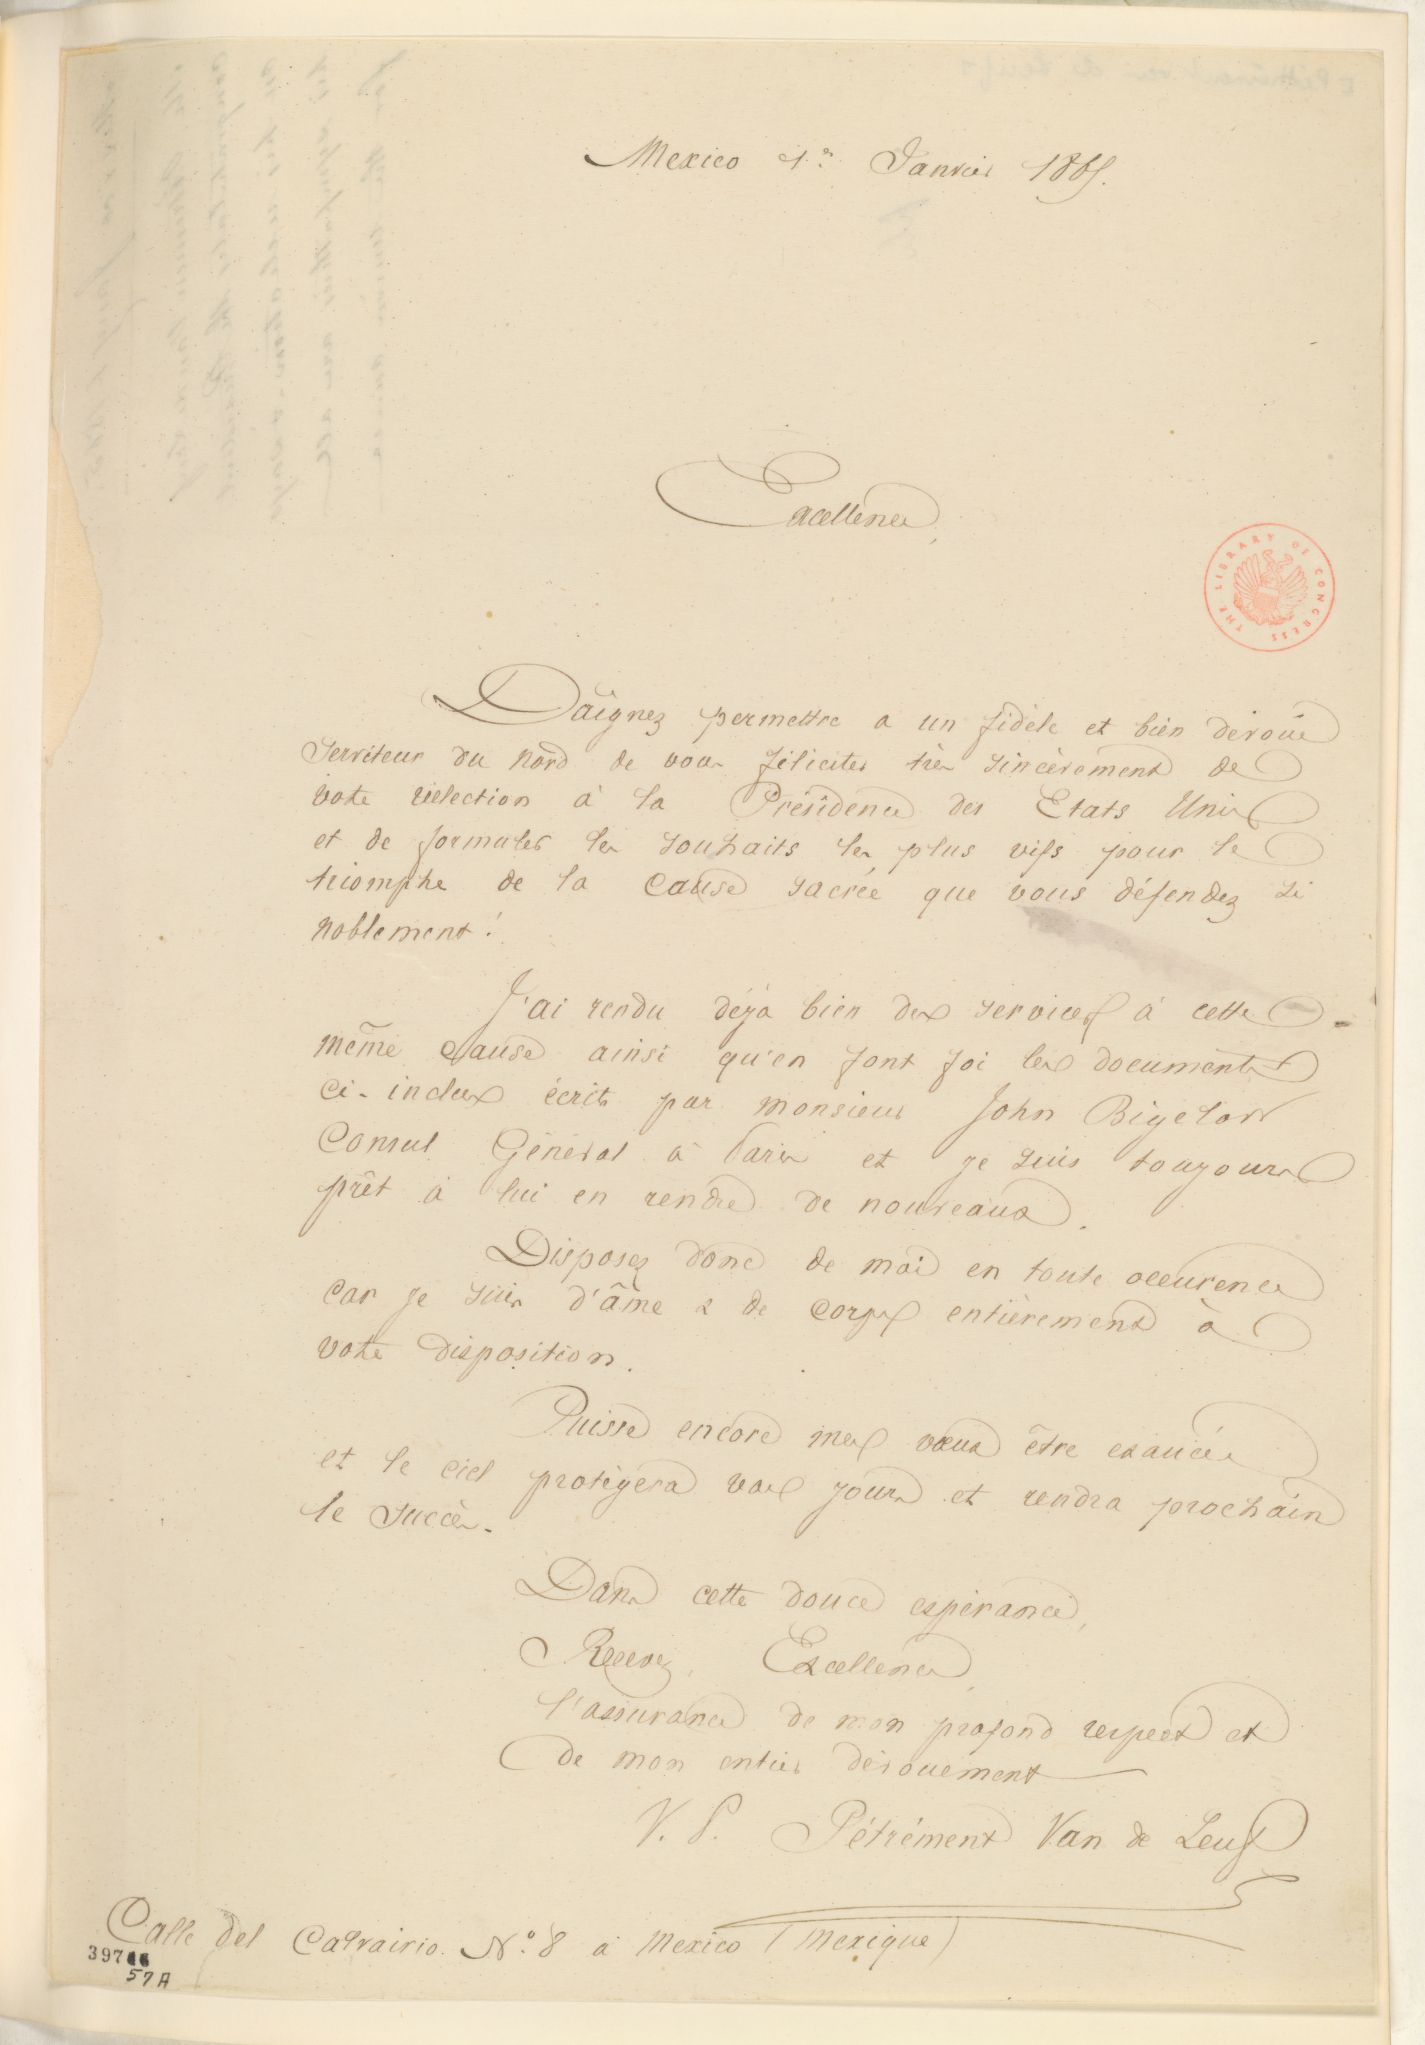 Mexico 1er Janvier 1865.
Excellence,
THE LIBRARY OF CONGRESS
Daignez permettre a un fidèle et bien dévoué
Serviteur du Nord de vous féliciter très sincèrement de
votre réelection à la Présidence des Etats Unis
et de formuler les souhaits les plus vifs pour le
triomphe de la Cause sacrée que vous défendez si
noblement!
J'ai rendu déjà bien des services à cette
même Cause ainsi qu'en font foi les documents
ci-inclus écrits par monsieur John Bigelow
Consul Général à Paris et je suis toujours
prêt à lui en rendre de nouveaux.
Disposez donc de moi en toute occurence
car je suis d'âme & de corps entièrement à
votre disposition.
Puisse encore mes vœux être exaucés
et le ciel protègera vos jours et rendra prochain
le succès.
Dans cette douce espérance,
Recevez, Excellence,
l'assurance de mon profond respect et
de mon entier dévouement
V. P. Pétrément Van de Leuf
Calle del Calvairio No. 8 à Mexico (Mexique)
397
57A